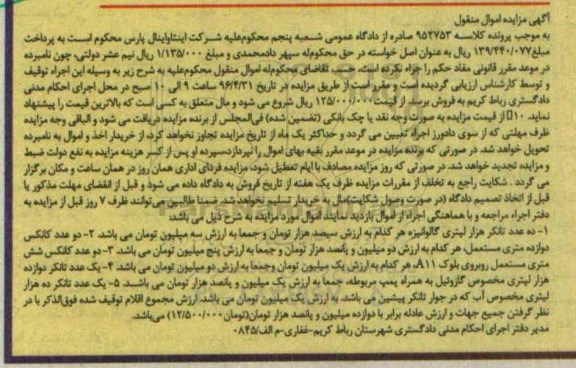 آگهی مزایده اموال منقول
به موجب پرونده کلاسه ۹۵۲۷۵۳ صادره از دادگاه عمومی شعبه پنجم محکوم‌علیه شرکت اینتاوایتال پارس محکوم است به پرداخت
مبلغ ۱۳۹/۴۴۰/۰۷۷ ریال به عنوان اصل خواسته در حق محکوم‌له سپهر دادمحمدی و مبلغ ۱/۱۳۵/۰۰۰ ریال نیم عشر دولتی، چون نامبرده
در موعد مقرر قانونی مفاد حکم را اجراء نکرده است، حسب تقاضای محکوم‌له اموال منقول محکوم‌علیه به شرح زیر به وسیله این اجراء توقیف
و توسط کارشناس ارزیابی گردیده است و مقرر است از طریق مزایده در تاریخ ۹۶/۴/۳۱ ساعت ۹ الی ۱۰ صبح در محل اجرای احکام مدنی
دادگستری رباط کریم به فروش برسد. از قیمت ۱۲۵/۰۰۰/۰۰۰ ریال شروع می شود و مال متعلق به کسی است که بالاترین قیمت را پیشنهاد
نماید. ۱۰٪ از قیمت مزایده به صورت وجه نقد یا چک بانکی (تضمین شده) فی‌المجلس از برنده مزایده دریافت می شود و الباقی وجه مزایده
ظرف مهلتی که از سوی دادورز اجراء تعیین می گردد و حداکثر یک ماه از تاریخ مزایده تجاوز نخواهد کرد، از خریدار اخذ و اموال به نامبرده
تحویل خواهد شد. در صورتی که برنده مزایده در موعد مقرر بقیه بهای اموال را نپردازد،سپرده او پس از کسر هزینه مزایده به نفع دولت ضبط
و مزایده تجدید خواهد شد. در صورتی که روز مزایده مصادف با ایام تعطیل شود، مزایده فردای اداری همان روز در همان ساعت و مکان برگزار
می گردد . شکایت راجع به تخلف از مقررات مزایده ظرف یک هفته از تاریخ فروش به دادگاه داده می شود و قبل از انقضای مهلت مذکور یا
قبل از اتخاذ تصمیم دادگاه (در صورت وصول شکایت)مال به خریدار تسلیم نخواهد شد. ضمنا طالبین می‌توانند ظرف ۷ روز قبل از مزایده به
دفتر اجراء مراجعه و با هماهنگی اجراء از اموال بازدید نمایند. اموال مورد مزایده به شرح ذیل می باشد:
۱- ده عدد تانکر هزار لیتری گالوانیزه هر کدام به ارزش سیصد هزار تومان و جمعا به ارزش سه میلیون تومان می باشد. ۲- دو عدد کانکس
دوازده متری مستعمل، هر کدام به ارزش دو میلیون و پانصد هزار تومان و جمعا به ارزش پنج میلیون تومان می باشد. ۳- دو عدد کانکس شش
متری مستعمل روبروی بلوک A۱۱، هر کدام به ارزش یک میلیون تومان وجمعا به ارزش دو میلیون تومان می باشد. ۴- یک عدد تانکر دوازده
هزار لیتری مخصوص گازوئیل به همراه پمپ مربوطه، جمعا به ارزش یک میلیون و پانصد هزار تومان می باشد. ۵- یک عدد تانکر ده هزار
لیتری مخصوص آب که در جوار تانکر پیشین می باشد. به ارزش یک میلیون تومان می باشد. ارزش مجموع اقلام توقیف شده فوق‌الذکر با در
نظر گرفتن جمیع جهات و ارزش عادله برابر با دوازده میلیون و پانصد هزار تومان(تومان ۱۲/۵۰۰/۰۰۰) می‌باشد.
مدیر دفتر اجرای احکام مدنی دادگستری شهرستان رباط کریم-غفاری-م الف/۰۸۴۵